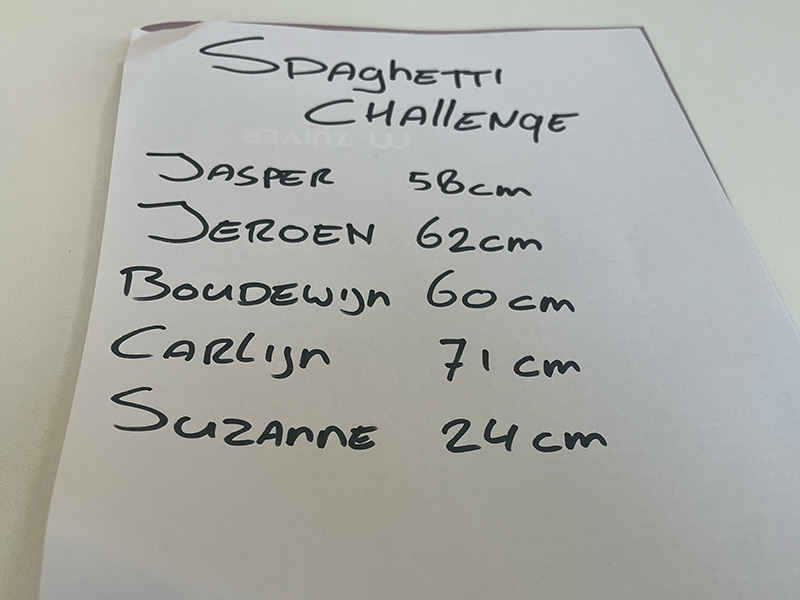 SPAghETTI
CHAllENgE
JASPER 58cm
JEROEN 62cm
BOUDEWIJn 60cm
CARLIJn 71cm
SuZAnnE 24cm